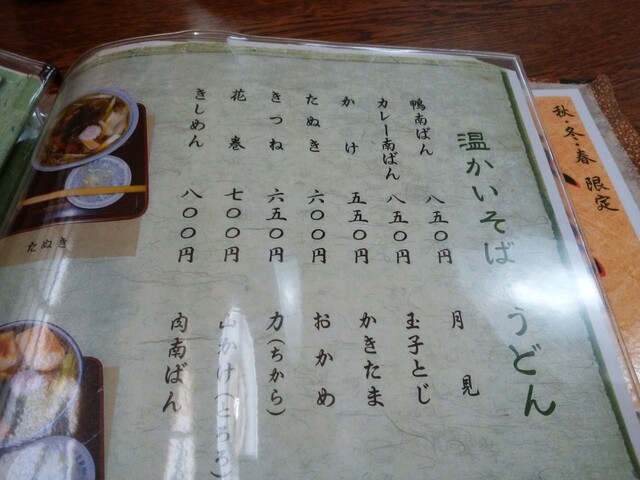 温かいそば うどん
鴨南ばん 八五〇円
カレー南ばん 八五〇円
かけ 五五〇円
たぬき 六〇〇円
きつね 六五〇円
花巻 七〇〇円
きしめん 八〇〇円
月見
玉子とじ
かきたま
おかめ
力(ちから)
山かけ(とろろ)
肉南ばん
たぬき
秋・冬・春限定